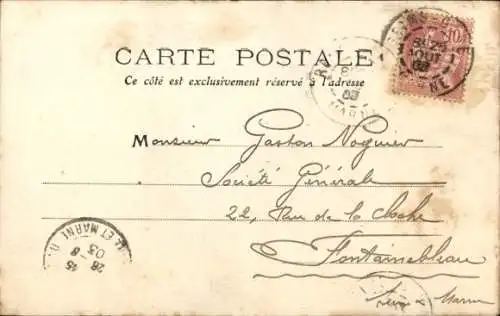 CARTE POSTALE
Ce côté est exclusivement réservé à l'adresse
Monsieur Gaston Noguier
Société Générale
22, Rue de la Cloche
Fontainebleau
Seine & Marne
10
MARNE
ET MARNE
15
28-8
03